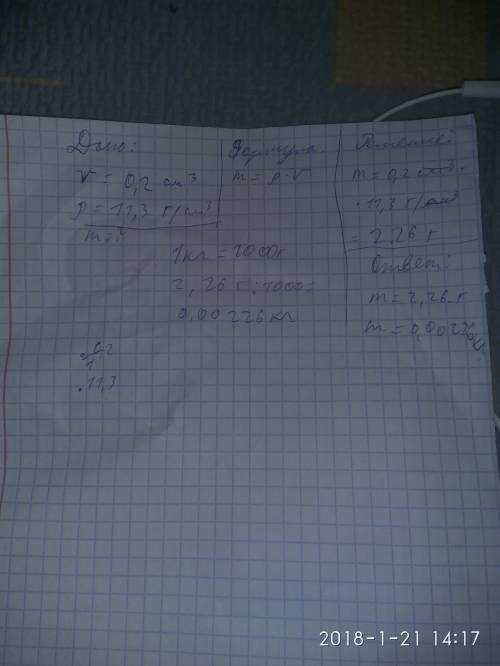 Дано:
V = 0,2 см³
ρ = 11,3 г/см³
m = ?
Формула:
m = ρ·V
1 кг = 1000 г
2,26 г : 1000 =
0,00226 кг
Решение:
m = 0,2 см³ ·
· 11,3 г/см³
= 2,26 г
Ответ:
m = 2,26 г
m = 0,00226 кг
0,2
11,3
2018-1-21 14:17